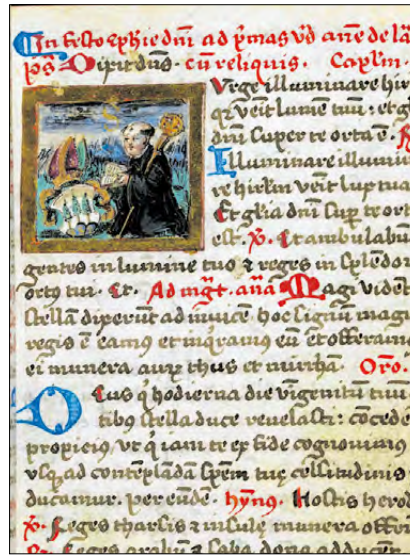 In festo ephie dni ad pmas vd ane de la
ps Dixit dns. cu reliquis. Caplm.
Urge illuminare hir
qr veit lume tuu: et g
dni super te orta e.
Illuminare illumin
re hirlm veit lux tua
Et glia dni sup te ort
est. Et ambulabu
gentes in lumine tuo et reges in splendor
ortus tui. Et. Ad mgt. ana Magi vident
stella dixerut ad inuice hoc signum magn
regis e eamus et inqramus eu et offeram
ei munera auru thus et mirrha. Oro.
Deus q hodierna die vigenitu tuu
tibus stella duce reuelasti: cocede
propicius, vt q iam te ex fide cognouimus
vsq ad contepladam spem tue celsitudinis
ducamur. per eude. hyns. Hostis herod
Reges tharsis et insule munera offer
Reges arabu et saba dona adducen